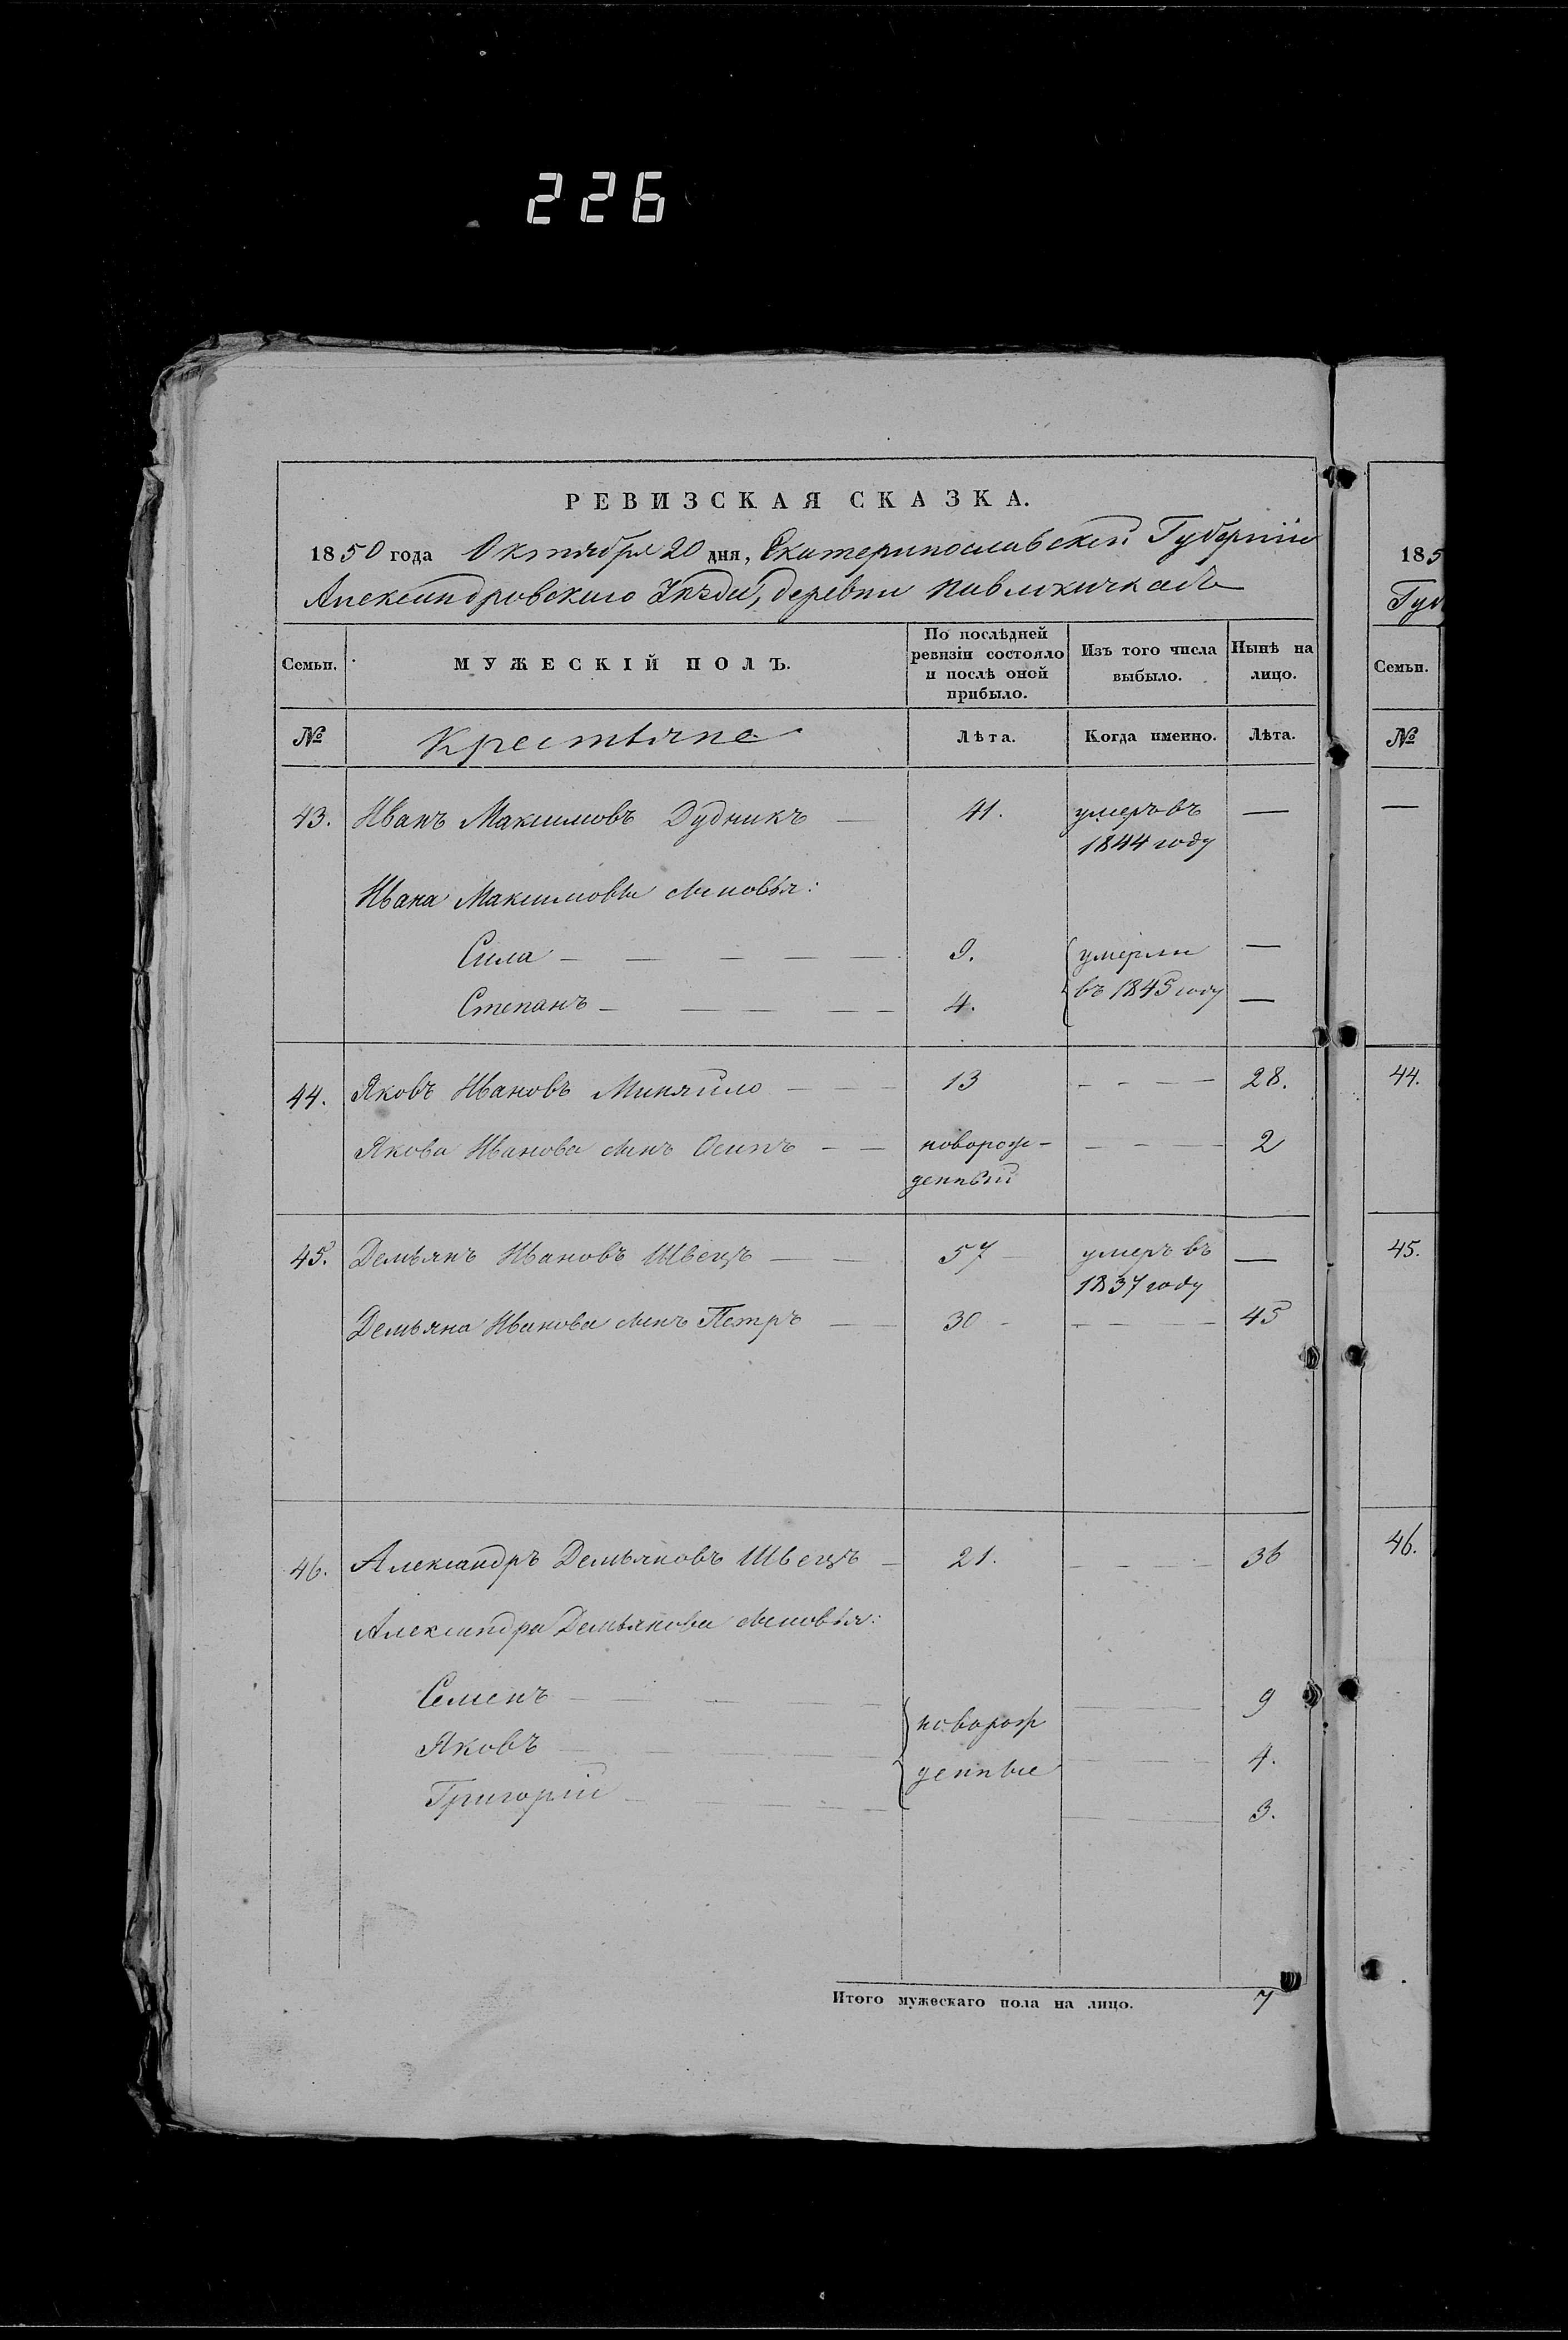 226
РЕВИЗСКАЯ СКАЗКА.
1850 года Октября 20 дня, Екатеринославской Губернии
Александровского Уѣзда, деревни
Семьи. МУЖЕСКІЙ ПОЛЪ. По послѣдней ревизіи состояло и послѣ оной прибыло. Изъ того числа выбыло. Нынѣ на лицо.
№ Крестьяне Лѣта. Когда именно. Лѣта.
43. Иванъ Максимовъ Дудникъ — 41. умеръ въ —
1844 году
Ивана Максимова сыновья:
Сила — — — — — 9. умерли —
Степанъ — — — — — 4. въ 1845 году —
44. Яковъ Ивановъ Миняйло — — — 13 — — — — 28.
Якова Иванова сынъ Осипъ — — новорож- — — — — 2
денный
45. Демьянъ Ивановъ Швецъ — — 57 — умеръ въ —
1837 году
Демьяна Иванова сынъ Петръ — — 30 — — — — — 45
46. Александръ Демьяновъ Швецъ — 21. — — — — 36
Александра Демьянова сыновья:
Семенъ — — — — — 9
Яковъ — — — — новорож — 4.
Григорій — — — — денные — 3.
Итого мужескаго пола на лицо. 7
185
Гу
Семьи.
№
—
44.
45.
46.